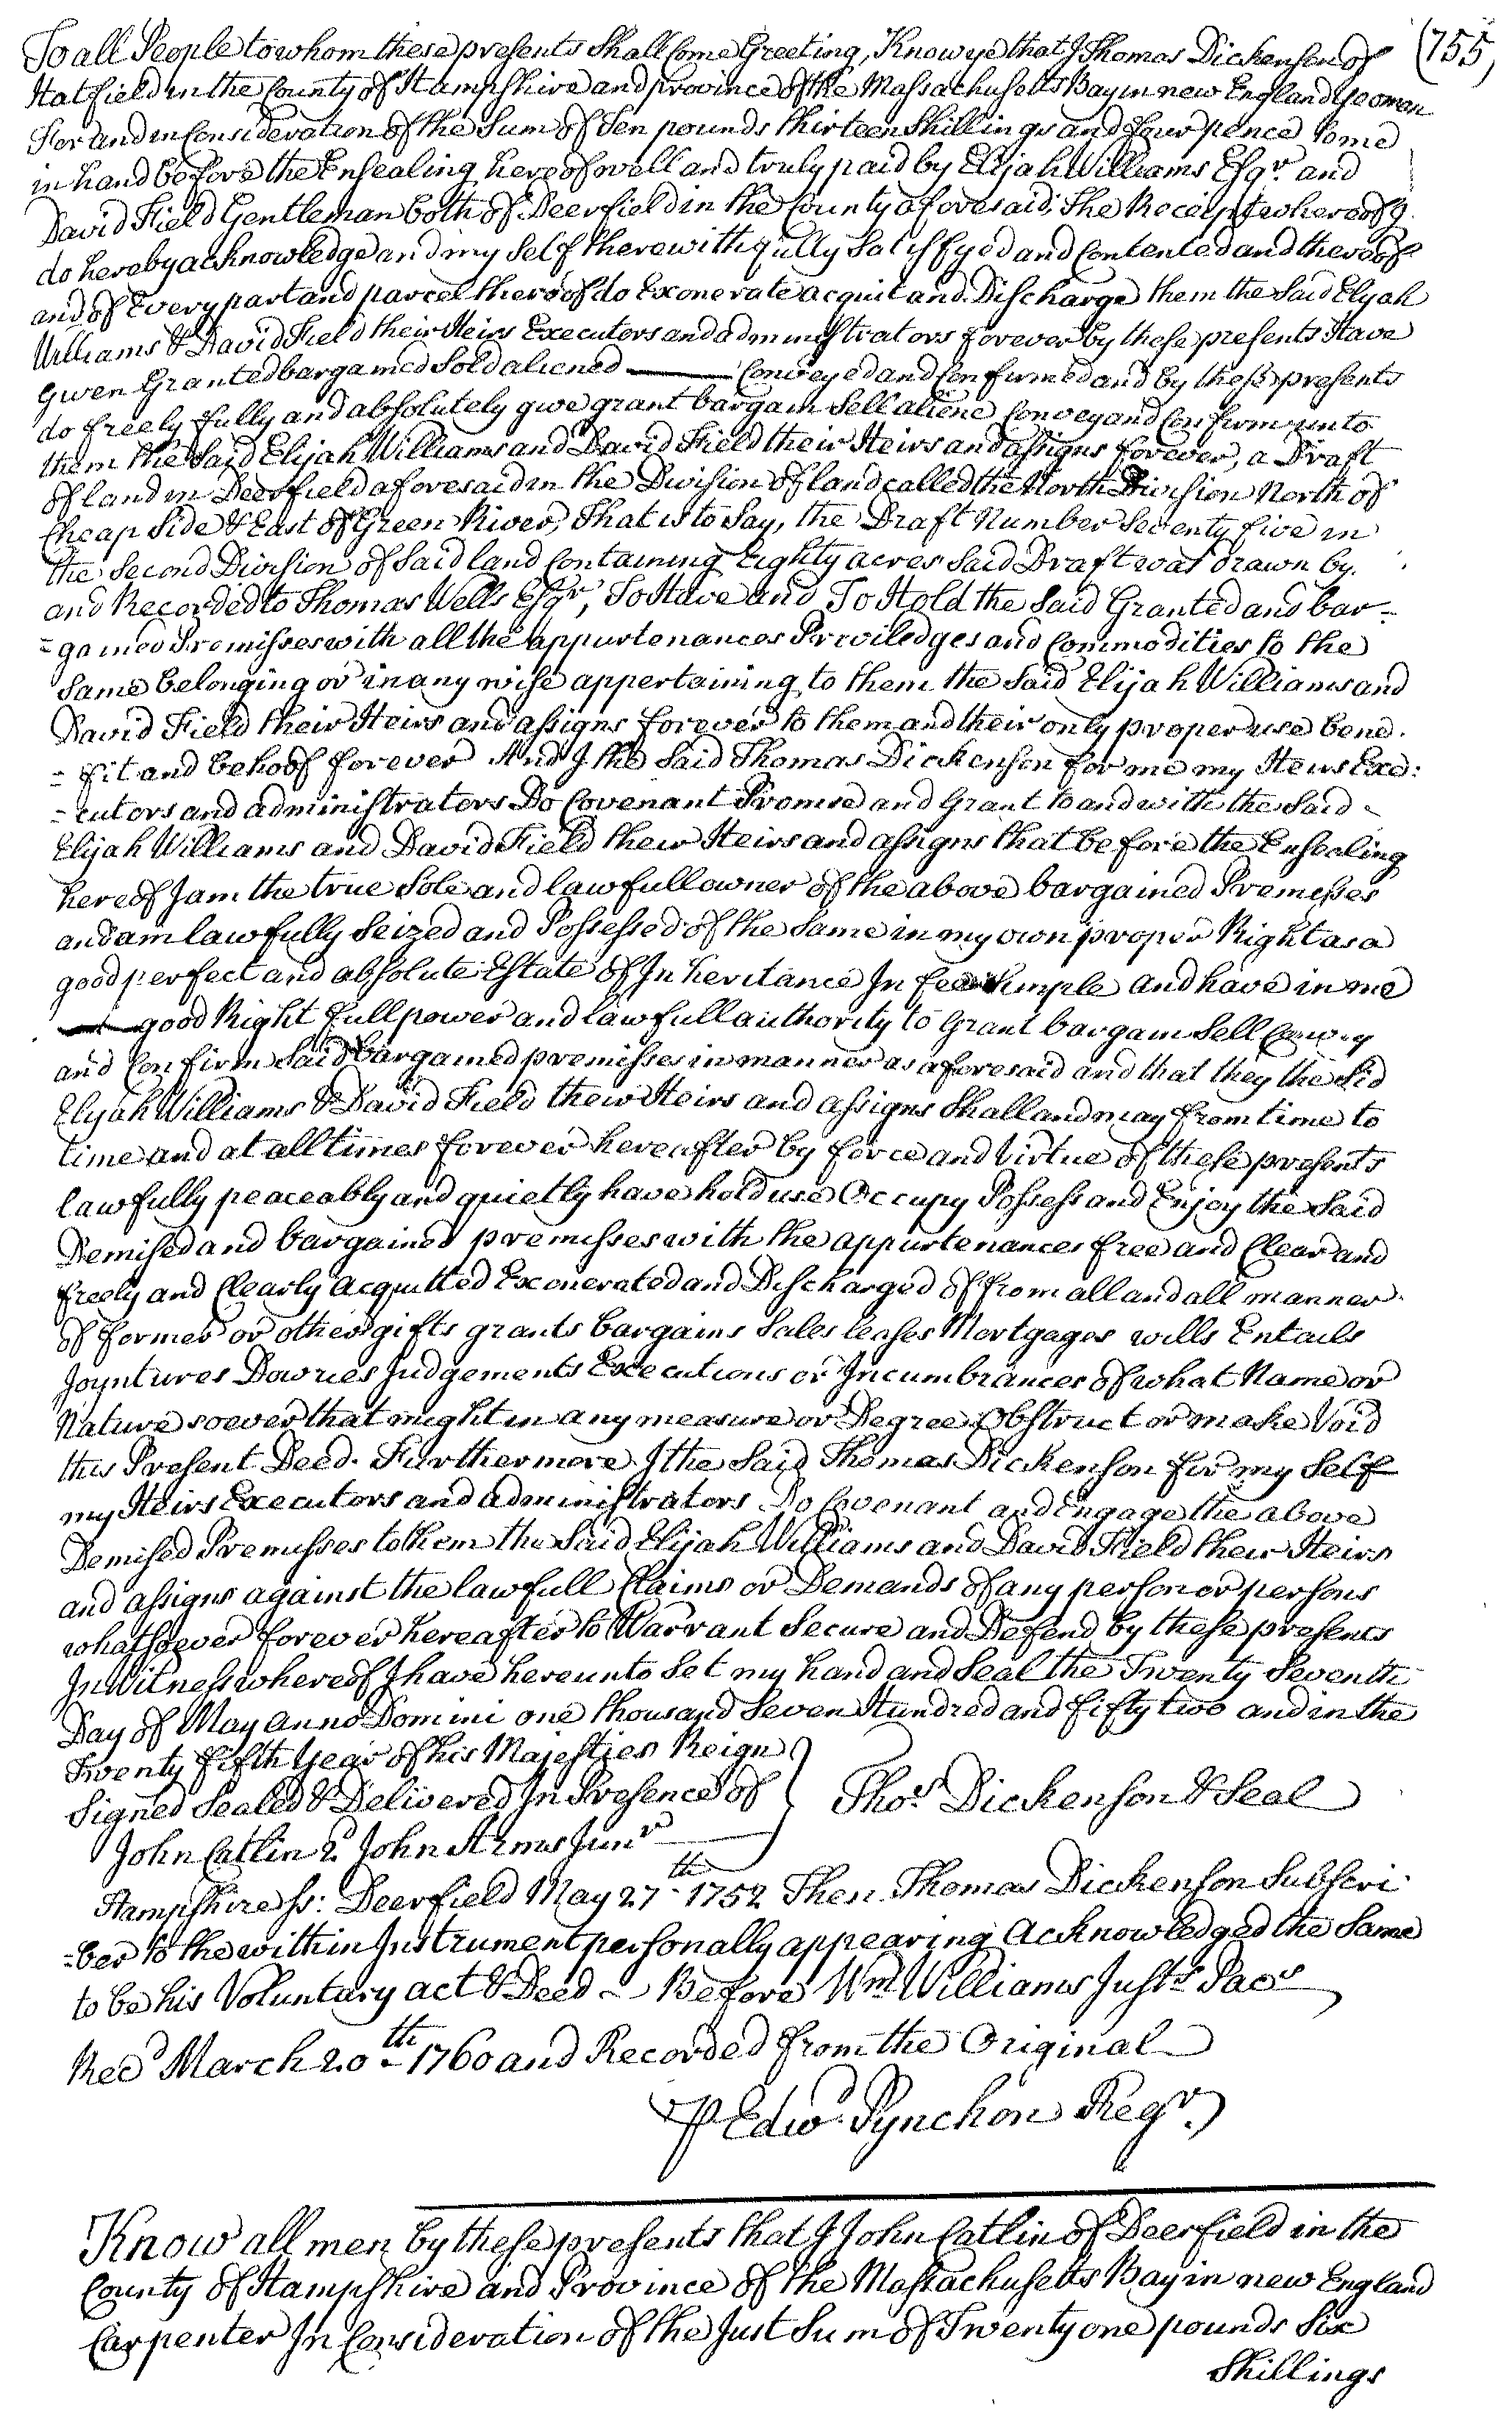 (755)
To all People to whom these presents Shall Come Greeting, Know ye that I Thomas Dickenson of
Hatfield in the County of Hampshire and province of the Massachusetts Bay in new England Yeoman
For and in Consideration of the Sum of Ten pounds thirteen Shillings and four pence to me
in hand before the Ensealing hereof well and truly paid by Elijah Williams Esqr. and
David Field Gentleman both of Deerfield in the County aforesaid, The Receipt whereof I
do hereby acknowledge and my Self therewith fully Satisfyed and Contented and thereof
and of Every part and parcel thereof do Exonerate acquit and Discharge them the Said Elijah
Williams & David Field their Heirs Executors and administrators forever by these presents Have
Given Granted bargained Sold aliened —— Conveyed and Confirmed and by these presents
do freely fully and absolutely give grant bargain Sell aliene Convey and Confirm unto
them the Said Elijah Williams and David Field their Heirs and assigns forever, a Draft
of land in Deerfield aforesaid in the Division of land called the North Division North of
Cheap Side & East of Green River, That is to Say, the Draft Number Seventy five in
the Second Division of Said land Containing Eighty acres Said Draft was drawn by
and Recorded to Thomas Wells Esqr, To Have and To Hold the Said Granted and bar-
=gained Premisses with all the appurtenances Priviledges and Commodities to the
Same belonging or in any wise appertaining to them the Said Elijah Williams and
David Field their Heirs and assigns forever to them and their only proper use bene-
=fit and behoof forever And I the Said Thomas Dickenson for me my Heirs Exe:
=cutors and administrators Do Covenant Promise and Grant to and with the Said
Elijah Williams and David Field their Heirs and assigns that before the Ensealing
hereof I am the true Sole and lawfull owner of the above bargained Premisses
and am lawfully Seized and Possessed of the Same in my own proper Right as a
good perfect and absolute Estate of Inheritance In fee Simple and have in me
good Right full power and lawfull authority to Grant bargain Sell Convey
and Confirm Said bargained premisses in manner as aforesaid and that they the Sid
Elijah Williams & David Field their Heirs and assigns Shall and may from time to
time and at all times forever hereafter by force and Virtue of these presents
lawfully peaceably and quietly have hold use Occupy Possess and Enjoy the Said
Demised and bargained premisses with the appurtenances free and Clear and
freely and Clearly acquitted Exonerated and Discharged of from all and all manner
of former or other gifts grants bargains Sales leases Mortgages wills Entails
Joyntures Dowries Judgements Executions or Incumbrances of what Name or
Nature soever that might in any measure or Degree Obstruct or make Void
this Present Deed. Furthermore I the Said Thomas Dickenson for my Self
my Heirs Executors and administrators Do Covenant and Engage the above
Demised Premisses to them the Said Elijah Williams and David Field their Heirs
and assigns against the lawfull Claims or Demands of any person or persons
whatsoever forever hereafter to Warrant Secure and Defend by these presents
In Witness whereof I have hereunto Set my hand and Seal the Twenty Seventh
Day of May anno Domini one thousand Seven Hundred and fifty two and in the
Twenty fifth Year of his Majesties Reign
Signed Sealed & Delivered In Presence of } Thos. Dickenson & Seal
John Catlin 2d John Arms Junr
Hampshire ss: Deerfield May 27th 1752 Then Thomas Dickenson Subscri
=ber to the within Instrument personally appearing Acknowledged the Same
to be his Voluntary act & Deed — Before Wm Williams Justs Pacs
Recd March 20th 1760 and Recorded from the Original
P Edwd Pynchon Regr.
Know all men by these presents that I John Catlin of Deerfield in the
County of Hampshire and Province of the Massachusetts Bay in new England
Carpenter In Consideration of the Just Sum of Twenty one pounds Six
Shillings